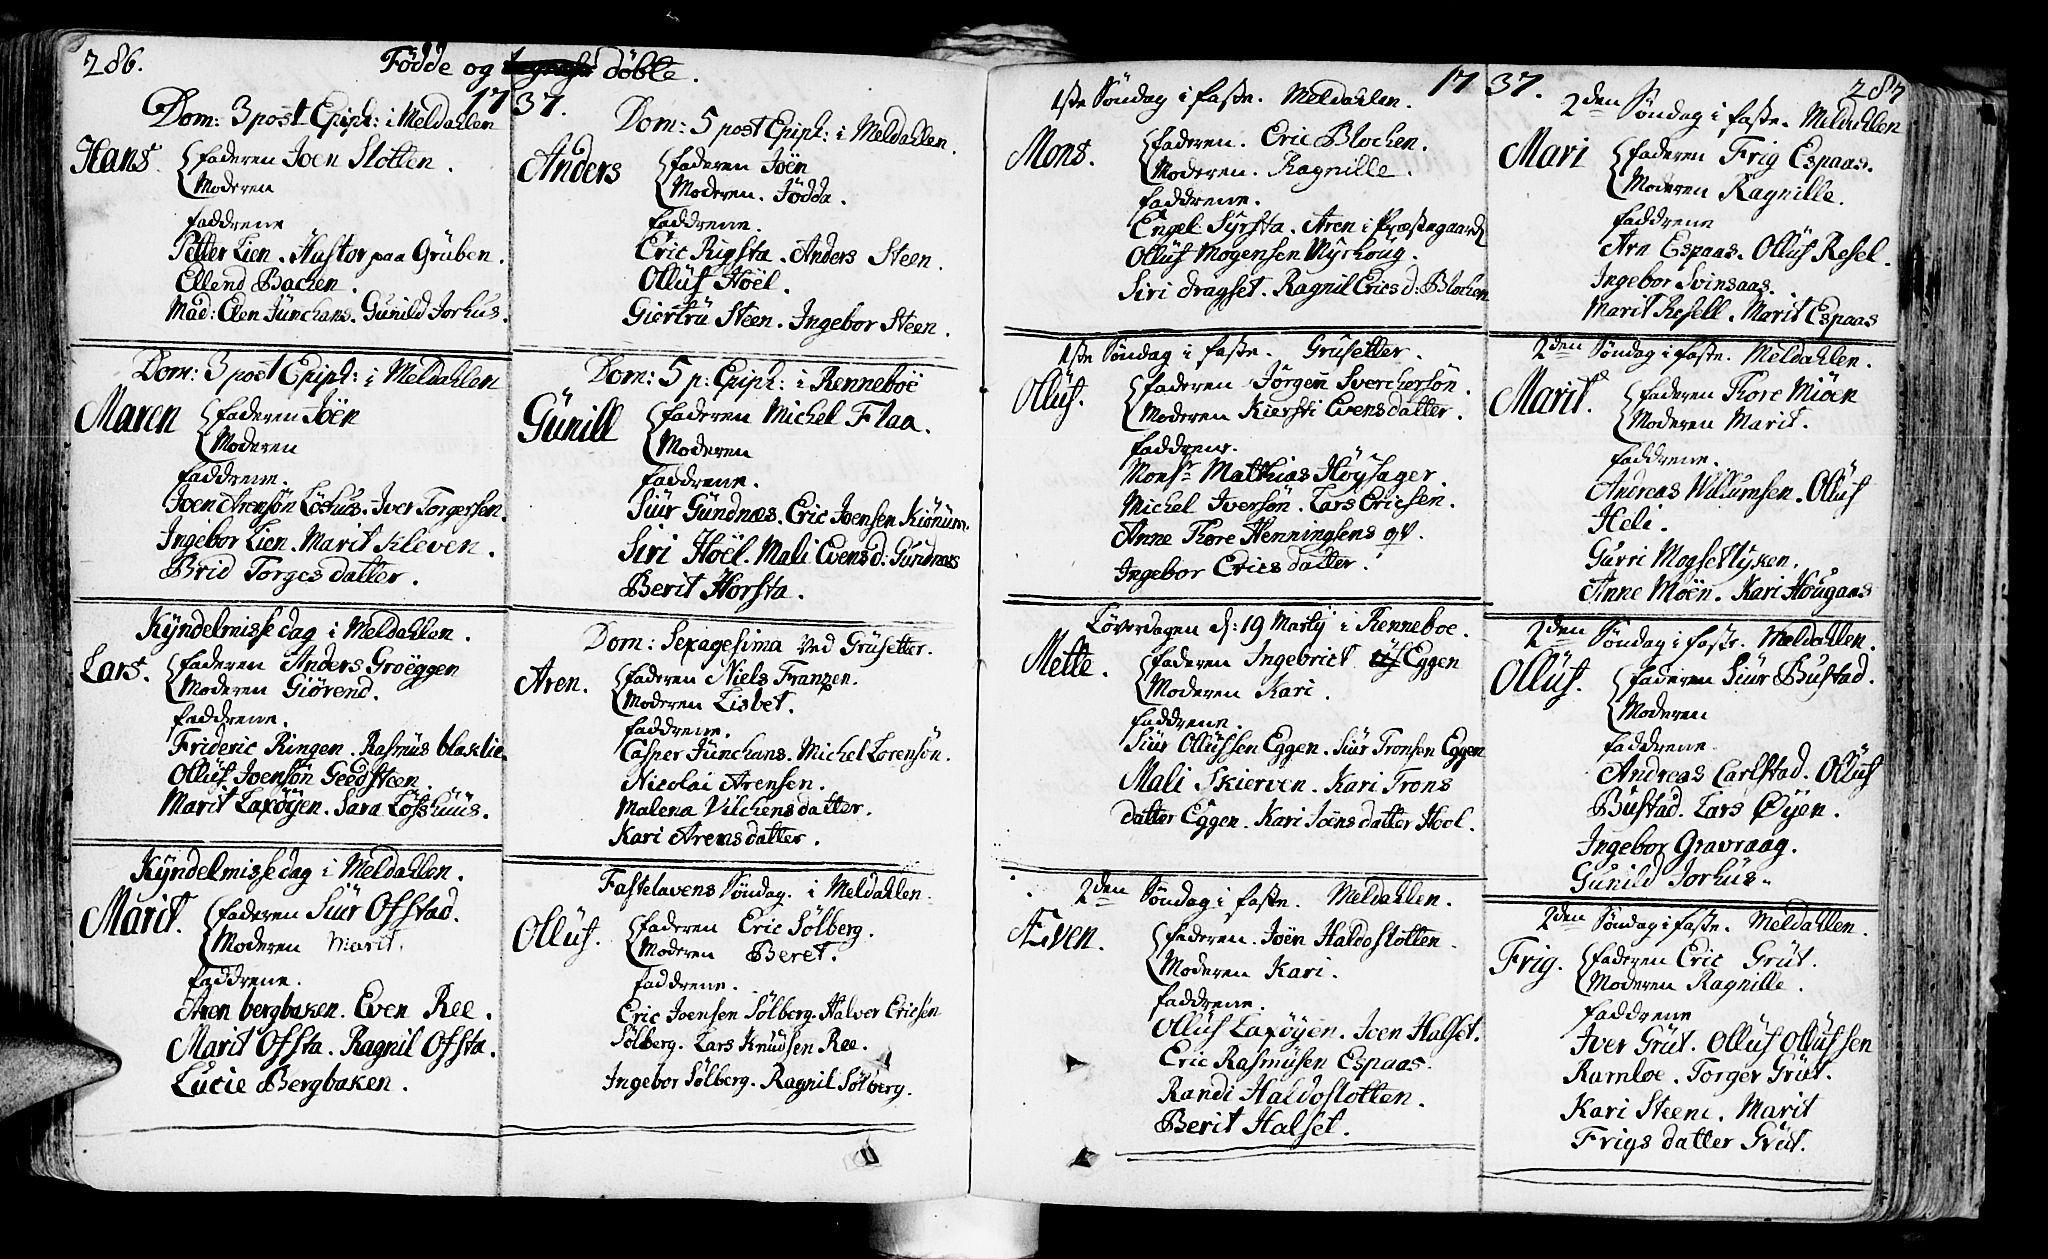 286.
Fødde og døbte.
1737.
Dom: 3 post Epiph: i Meldahlen
Hans.
Faderen Joen Slotten.
Moderen
Faddrene
Petter Lien. Hustor paa Grüben.
Ellend Bachen.
Mad: Elen Jünchans. Gunild Jorhus.
Dom: 3 post Epiph: i Meldahlen
Maren
Faderen Joën
Moderen
Faddrene.
Joen Arensøn Løshus. Iver Torgersen.
Ingebor Lien. Marit Kleven.
Brid Torgesdatter.
Kÿndelmisse dag i Meldahlen.
Lars.
Faderen Anders Groëggen
Moderen Giörend.
Faddrene.
Frideric Ringen. Rasmüs blaklie
Ollüf Joensøn Geedsteen.
Marit Laxøÿen. Sara Løshüüs.
Kÿndelmisse dag i Meldahlen.
Marit.
Faderen Siür Ofstad.
Moderen Marit.
Faddrene.
Aren bergbaken. Even Ree.
Marit Ofsta. Ragnil Ofsta.
Lucie Bergbaken.
Dom: 5 post Epiph: i Meldahlen.
Anders
Faderen Joën
Moderen. Jödda.
Faddrene.
Eric Rigsta. Anders Steen.
Ollüf Höel.
Giertrü Steen. Ingebor Steen.
Dom: 5 p: Epiph: i Renneboë
Günill
Faderen Michel Flaa.
Moderen
Faddrene.
Siür Gündnæs. Eric Joensen Kiönüm.
Siri Hoël. Mali Evensd: Gündnæs
Berit Horsta.
Dom: Sexagesima ved Grüsetter.
Aren.
Faderen Niels Franzen.
Moderen Lisbet.
Faddrene.
Casper Jünchans. Michel Lorensøn.
Nicolai Arensen.
Malena Vilchensdatter.
Kari Arensdatter.
Fastelavens Søndag. i Meldahlen.
Ollüf.
Faderen Eric Sölberg.
Moderen Beret.
Faddrene.
Eric Joensen Sölberg. Halver Ericsen
Sölberg. Lars Knüdsen Ree.
Ingebor Sölberg. Ragnil Sölberg.
1737.
287
1ste Søndag i faste. Meldahlen.
Mons.
Faderen. Eric Blochen.
Moderen. Ragnille.
Faddrene.
Engel Sÿrsta. Aren i Præstegaarden
Ollüf Mogensen Mÿrhoug.
Siri dragset. Ragnil Erics d: Blochen
1ste Søndag i faste. Grüsetter.
Ollüf.
Faderen Jörgen Sverchersön.
Moderen Kiersti Evensdatter.
Faddrene.
Monsr Matthias Höÿsager.
Michel Iversön. Lars Ericsen.
Anne Thore Henningsens
Ingebor Ericsdatter.
Løverdagen d: 19 Martij i Renneboe.
Mette.
Faderen Ingebrict Eggen
Moderen Kari.
Faddrene.
Siür Ollüfsen Eggen. Siür Tronsen Eggen
Mali Skierven. Kari Trons
datter Eggen. Kari Joënsdatter Hool.
2den Søndag i faste. Meldahlen.
Even.
Faderen. Joën Haldoslotten.
Moderen Kari.
Faddrene.
Ollüf Laxöyen. Joen Halset.
Eric Rasmüsen Espaas.
Randi Haldoslotten.
Berit Halset.
2den Søndag i faste. Meldahlen
Mari
Faderen Frig Espaas.
Moderen Ragnille.
Faddrene
Arn Espaas. Ollüf Resel.
Ingebor Svinsaas.
Marit Resell. Marit Espaas
2den Søndag i faste. Meldahlen.
Marit.
Faderen Thore Miöen
Moderen Marit.
Faddrene.
Andreas Villumsen. Ollüf
Heli.
Gurri Mogsetlÿken.
Anne Möen. Kari Hougans
2den Søndag i faste. Meldahlen.
Ollüf.
Faderen Siür Büstad.
Moderen
Faddrene
Andreas Carlstad. Ollüf
Büstad. Lars Øÿen.
Ingebor Gravraag.
Gunild Jorhus.
2den Søndag i faste. Meldahlen.
Frig.
Faderen Eric Grüt.
Moderen Ragnille.
Faddrene
Iver Grüt. Ollüf Ollüfsen
Ramloe. Torger Grüt.
Kari Steen. Marit
Frigsdatter Grüt.